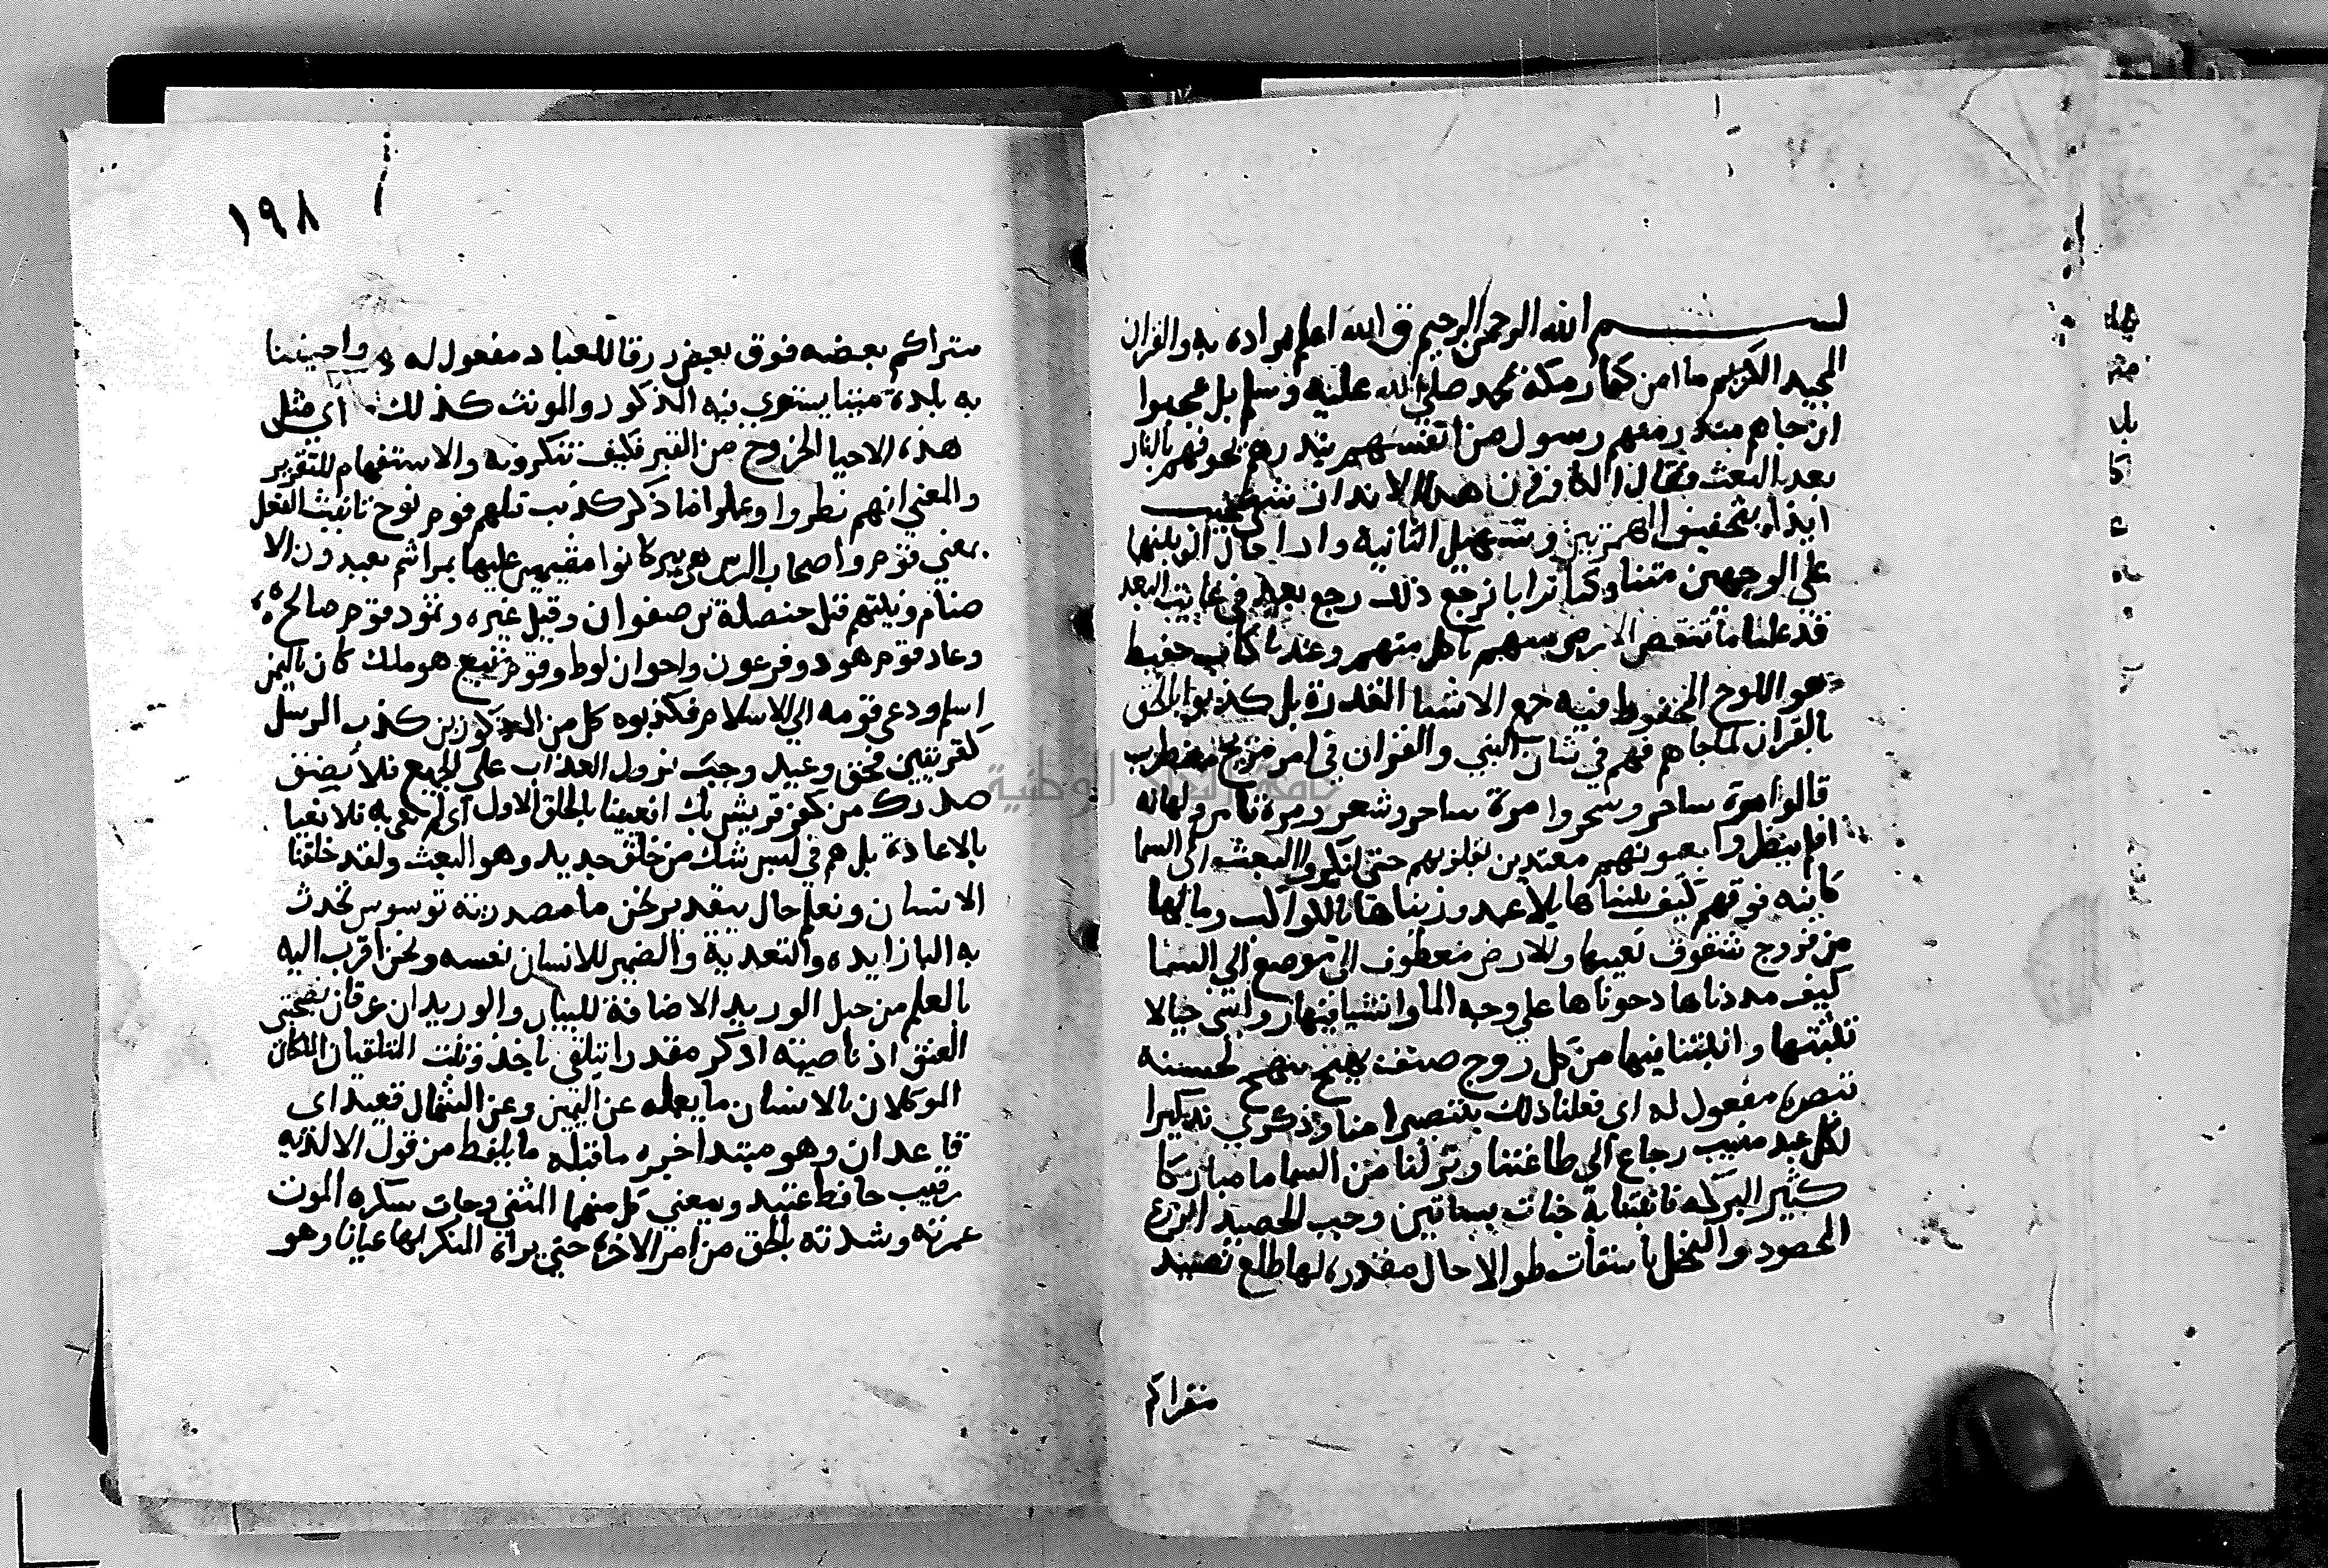 بســـــم الله الرحمن الرحيم ق الله اعلم بمراده به والقران
المجيد الكريم ما امن كفار مكة بمحمد صلي الله عليه وسلم بل عجبوا
ان جاهم منذر منهم رسول من انفسهم ينذرهم يخوفهم بالنار
بعد البعث فقال الكافرون هذا الانذار شي عجيب
ايذا بتحقيق الهمزتين وتسهيل الثانية وادخال الف بينها
علي الوجهين متنا وكنا ترابا نرجع ذلك رجع بعيد في غاية البعد
قد علمنا ما تنقص الارض منهم تاكل منهم وعندنا كتاب حفيظ
هو اللوح المحفوظ فيه جمع الاشيا المقدرة بل كذبوا بالحق
بالقران لما جاهم فهم في شان النبي والقران في امر مريج مضطرب
قالوا مرة ساحر وسحر وامرة شاعر وشعر ومرة كاهن وكهانة
افلم ينظروا بعيونهم معتبرين بقلوبهم حتي انكروا البعث الي السما
كاينه فوقهم كيف بنيناها بلا عمد وزيناها بالكواكب ومالها
من فروج شقوق تعيبها والارض معطوف الي موضع الي السما
كيف مددناها دحوناها علي وجه الما والقينا فيها رواسي جبالا
تثبتها وانبتنا فيها من كل زوج صنف بهيج يبتهج لحسنه
تبصرة مفعول له اي فعلنا ذلك تبصيرا منا وذكري تذكيرا
لكل عبد منيب رجاع الي طاعتنا ونزلنا من السما ما مباركا
كثير البركه فانبتنا به جنات بساتين وحب الحصيد الزرع
المحصود والنخل باسقات طوالا حال مقدره لها طلع نضيد
متراكم
١٩٨
متراكم بعضه فوق بعض رزقا للعباد مفعول له واحيينا
به بلدة ميتا يستوي فيه المذكور والمونث كذلك اي مثل
هذه الاحيا الخروج من القبر فكيف تنكرونه والاستفهام للتقرير
والمعني انهم نظروا وعلموا ما ذكر كذبت قبلهم قوم نوح تانيث الفعل
بمعني قوم واصحاب الرس هي بير كانوا مقيمين عليها بمواشيهم يعبدون الا
صنام ونبيهم قيل حنضلة بن صفوان وقيل غيره وثمود قوم صالح
وعاد قوم هود وفرعون واخوان لوط وقوم تبع هو ملك كان باليمن
اسلم ودعي قومه الي الاسلام فكذبوه كل من المذكورين كذب الرسل
كقريش فحق وعيد وجب نزول العذاب علي الجميع فلا يضيق
صدرك من كفر قريش بك افعيينا بالخلق الاول اي لم نعي به فلا نعيا
بالاعادة بل هم في لبس شك من خلق جديد وهو البعث ولقد خلقنا
الانسان ونعلم حال بتقدير نحن ما مصدرية توسوس تحدث
به البا زايده والتعدية والضمير للانسان نفسه ونحن اقرب اليه
بالعلم من حبل الوريد الاضافة للبيان والوريدان عرقان بصفحتي
العنق اذ ناصبه اذكر مقدرا يتلقي ياخذ ويثبت المتلقيان الملكان
الموكلان بالانسان ما يعمله عن اليمين وعن الشمال قعيد اي
قاعدان وهو مبتدا خبره ماقبله ما يلفظ من قول الا لديه
رقيب حافظ عتيد وبمعني كل منهما المثني وجات سكره الموت
غمرته وشدته بالحق من امر الاخره حتي يراه المنكر لها عيانا وهو